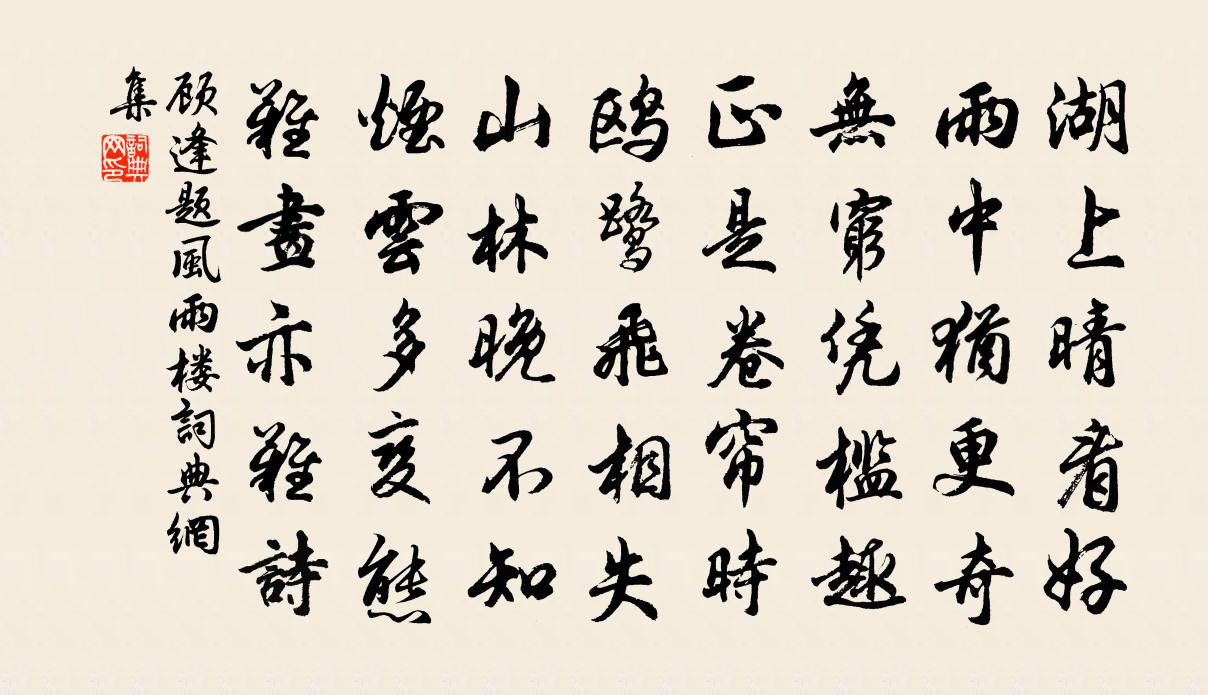 湖上晴看好
雨中猶更奇
無窮凭檻趣
正是卷帘時
鸥鹭飛相失
山林晚不知
煙雲多变態
難畫亦難詩
顾逢题風雨楼詞典網
集
詞典网印